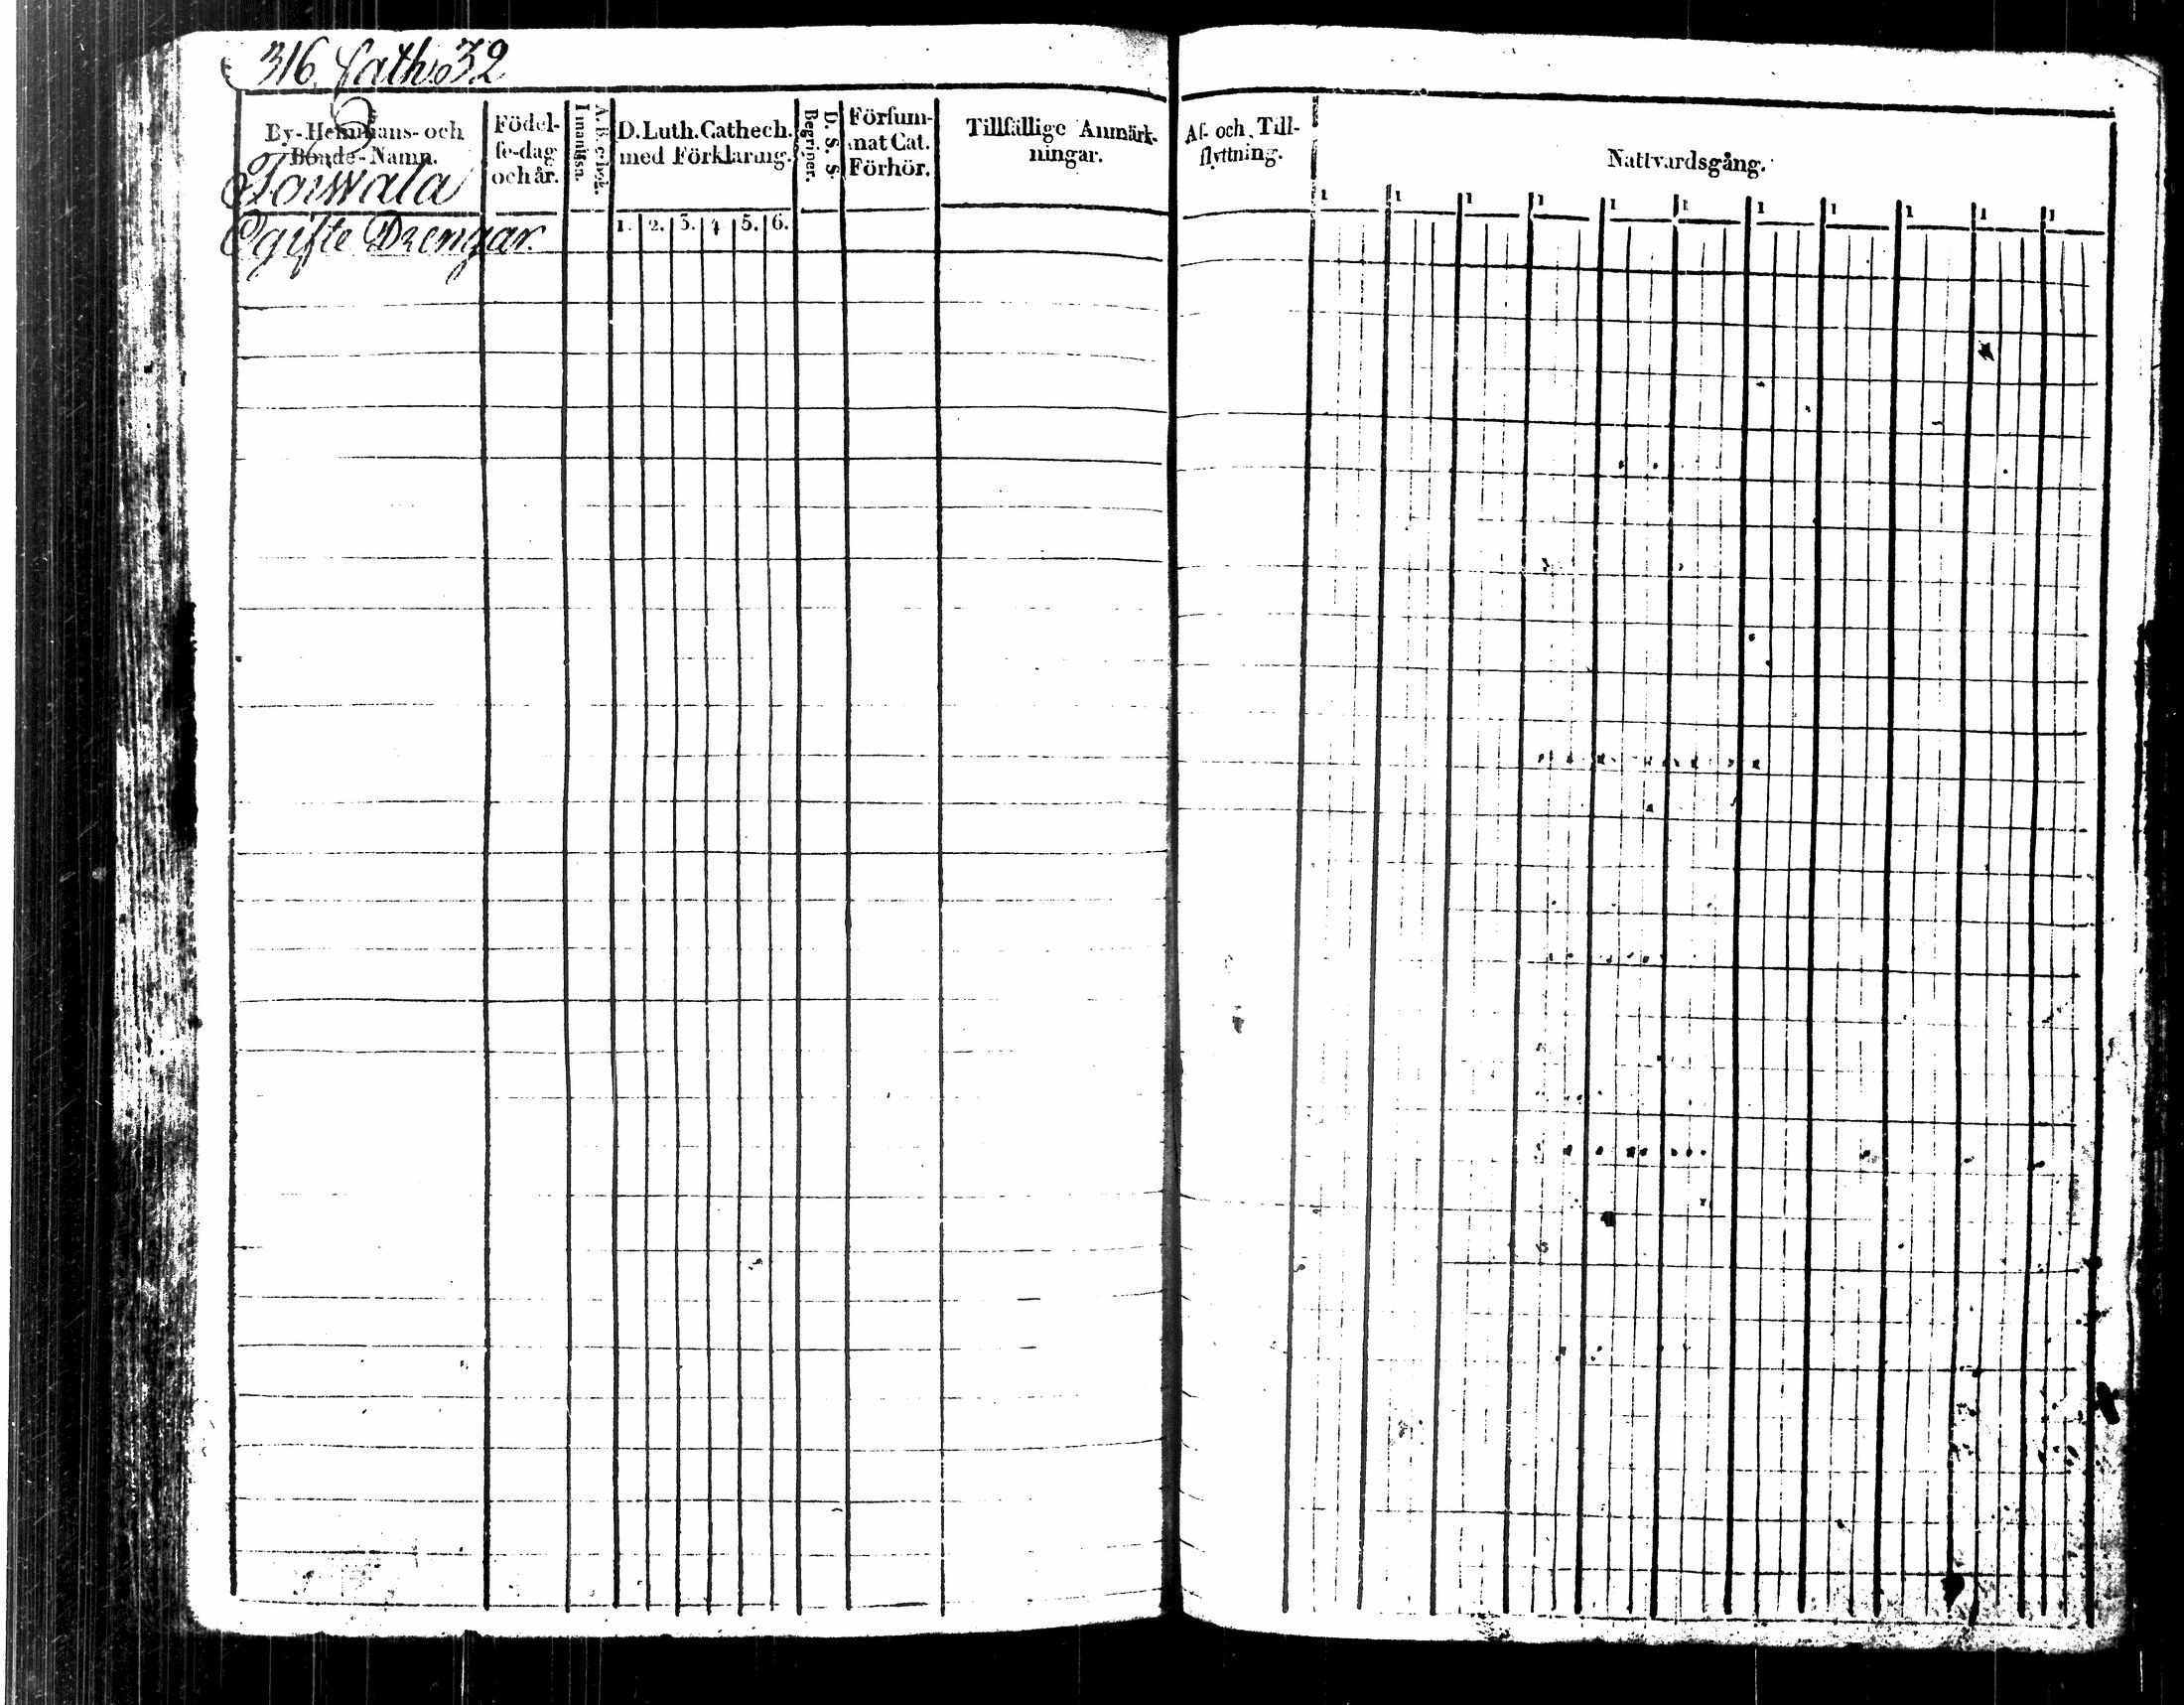 316.
32
By-Hemmans- och Bonde-Namn.
Födel-
se-dag
och år.
A. B. c-bok.
Innanläsn.
D. Luth. Cathech.
med Förklaring.
1. 2. 3. 4. 5. 6.
D. S. S.
Begriper.
Försum-
mat Cat.
Förhör.
Tillfällige Anmärk-
ningar.
Af- och Till-
flyttning.
Nattvardsgång.
1 1 1 1 1 1 1 1 1 1 1
Toiwala
Ogifte Drengar.